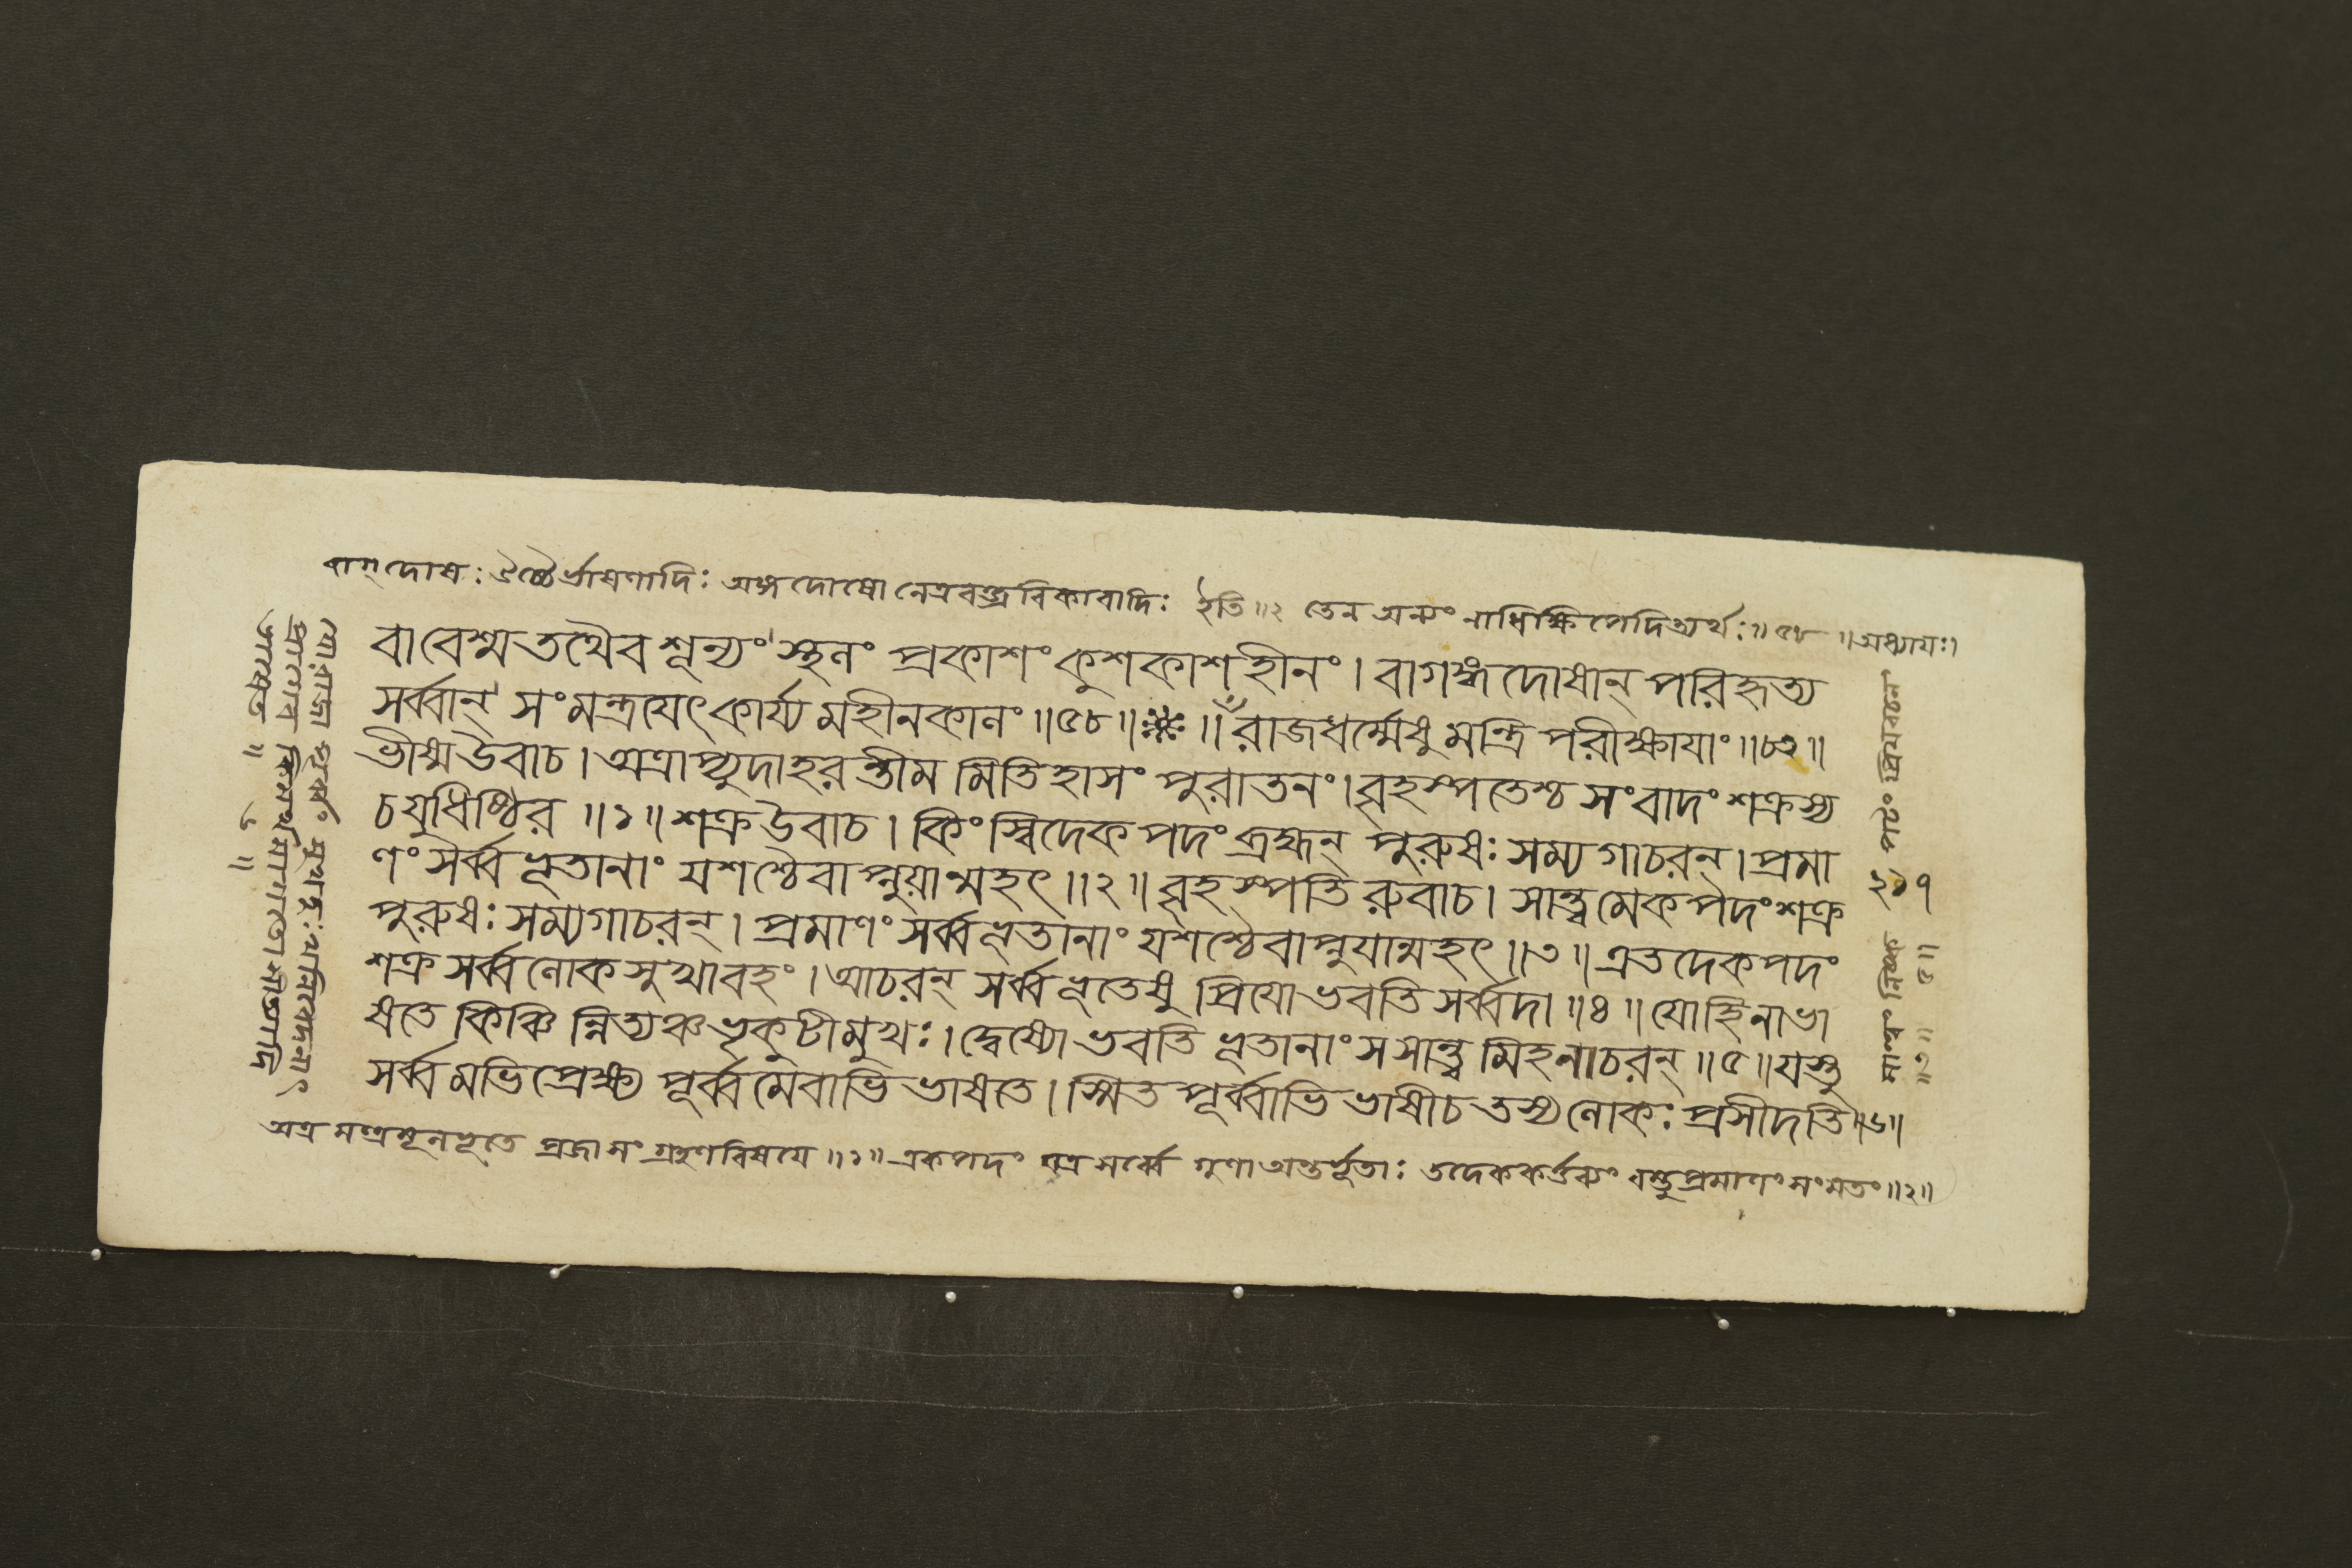 বাগ্দোষঃ উচ্চৈর্ভাষণাদিঃ অঙ্গদোষো নেত্রবক্ত্রবিকারাদিঃ ইতি ॥২ তেন অন্যং নাধিক্ষিপেদিত্যর্থঃ॥ ৫৮ ॥অধ্যায়ঃ।
বাবেশ্ম তথৈব শূন্যং স্থলং প্রকাশং কুশকাশহীনং। বাগঙ্গদোষান্ পরিহৃত্য
সর্ব্বান্ সংমন্ত্রযেৎ কার্য্যমহীনকালং ॥৫৮॥ ॥ঁ রাজধর্ম্মেষু মন্ত্রিপরীক্ষাযাং ॥৮২॥
ভীষ্ম উবাচ। অত্রাপ্যুদাহরন্তীমমিতিহাসং পুরাতনং। বৃহস্পতেশ্চ সংবাদং শক্রস্য
চ যুধিষ্ঠির ॥১॥ শক্র উবাচ। কিংস্বিদেকপদং ব্রহ্মন্ পুরুষঃ সম্যগাচরন্। প্রমা
ণং সর্ব্বভূতানাং যশশ্চৈবাপ্নুয়ান্মহৎ ॥২॥ বৃহস্পতিরুবাচ। সান্ত্বমেকপদং শক্র
পুরুষঃ সম্যগাচরন্। প্রমাণং সর্ব্বভূতানাং যশশ্চৈবাপ্নুযান্মহৎ ॥৩॥ এতদেকপদং
শক্র সর্ব্বলোকসুখাবহং। আচরন্ সর্ব্বভূতেষু প্রিযো ভবতি সর্ব্বদা ॥৪॥ যো হি নাভা
ষতে কিঞ্চিন্নিত্যঞ্চ ভৃকুটীমুখঃ। দ্বেষ্যো ভবতি ভূতানাং স সান্ত্বমিহ নাচরন্ ॥৫॥ যস্তু
সর্ব্বমভিপ্রেক্ষ্য পূর্ব্বমেবাভিভাষতে। স্মিতপূর্ব্বাভিভাষী চ তস্য লোকঃ প্রসীদতি ॥৬॥
অত্র মন্ত্রমূলভূতে প্রজাসংগ্রহণবিষযে ॥১॥ একপদং যত্র সর্ব্বে গুণা অন্তর্ভূতাঃ তদেককর্ত্তব্যং বস্তু প্রমাণং সংমতং ॥২॥
যো রাজা
২১৭
॥৩॥ ॥৫॥